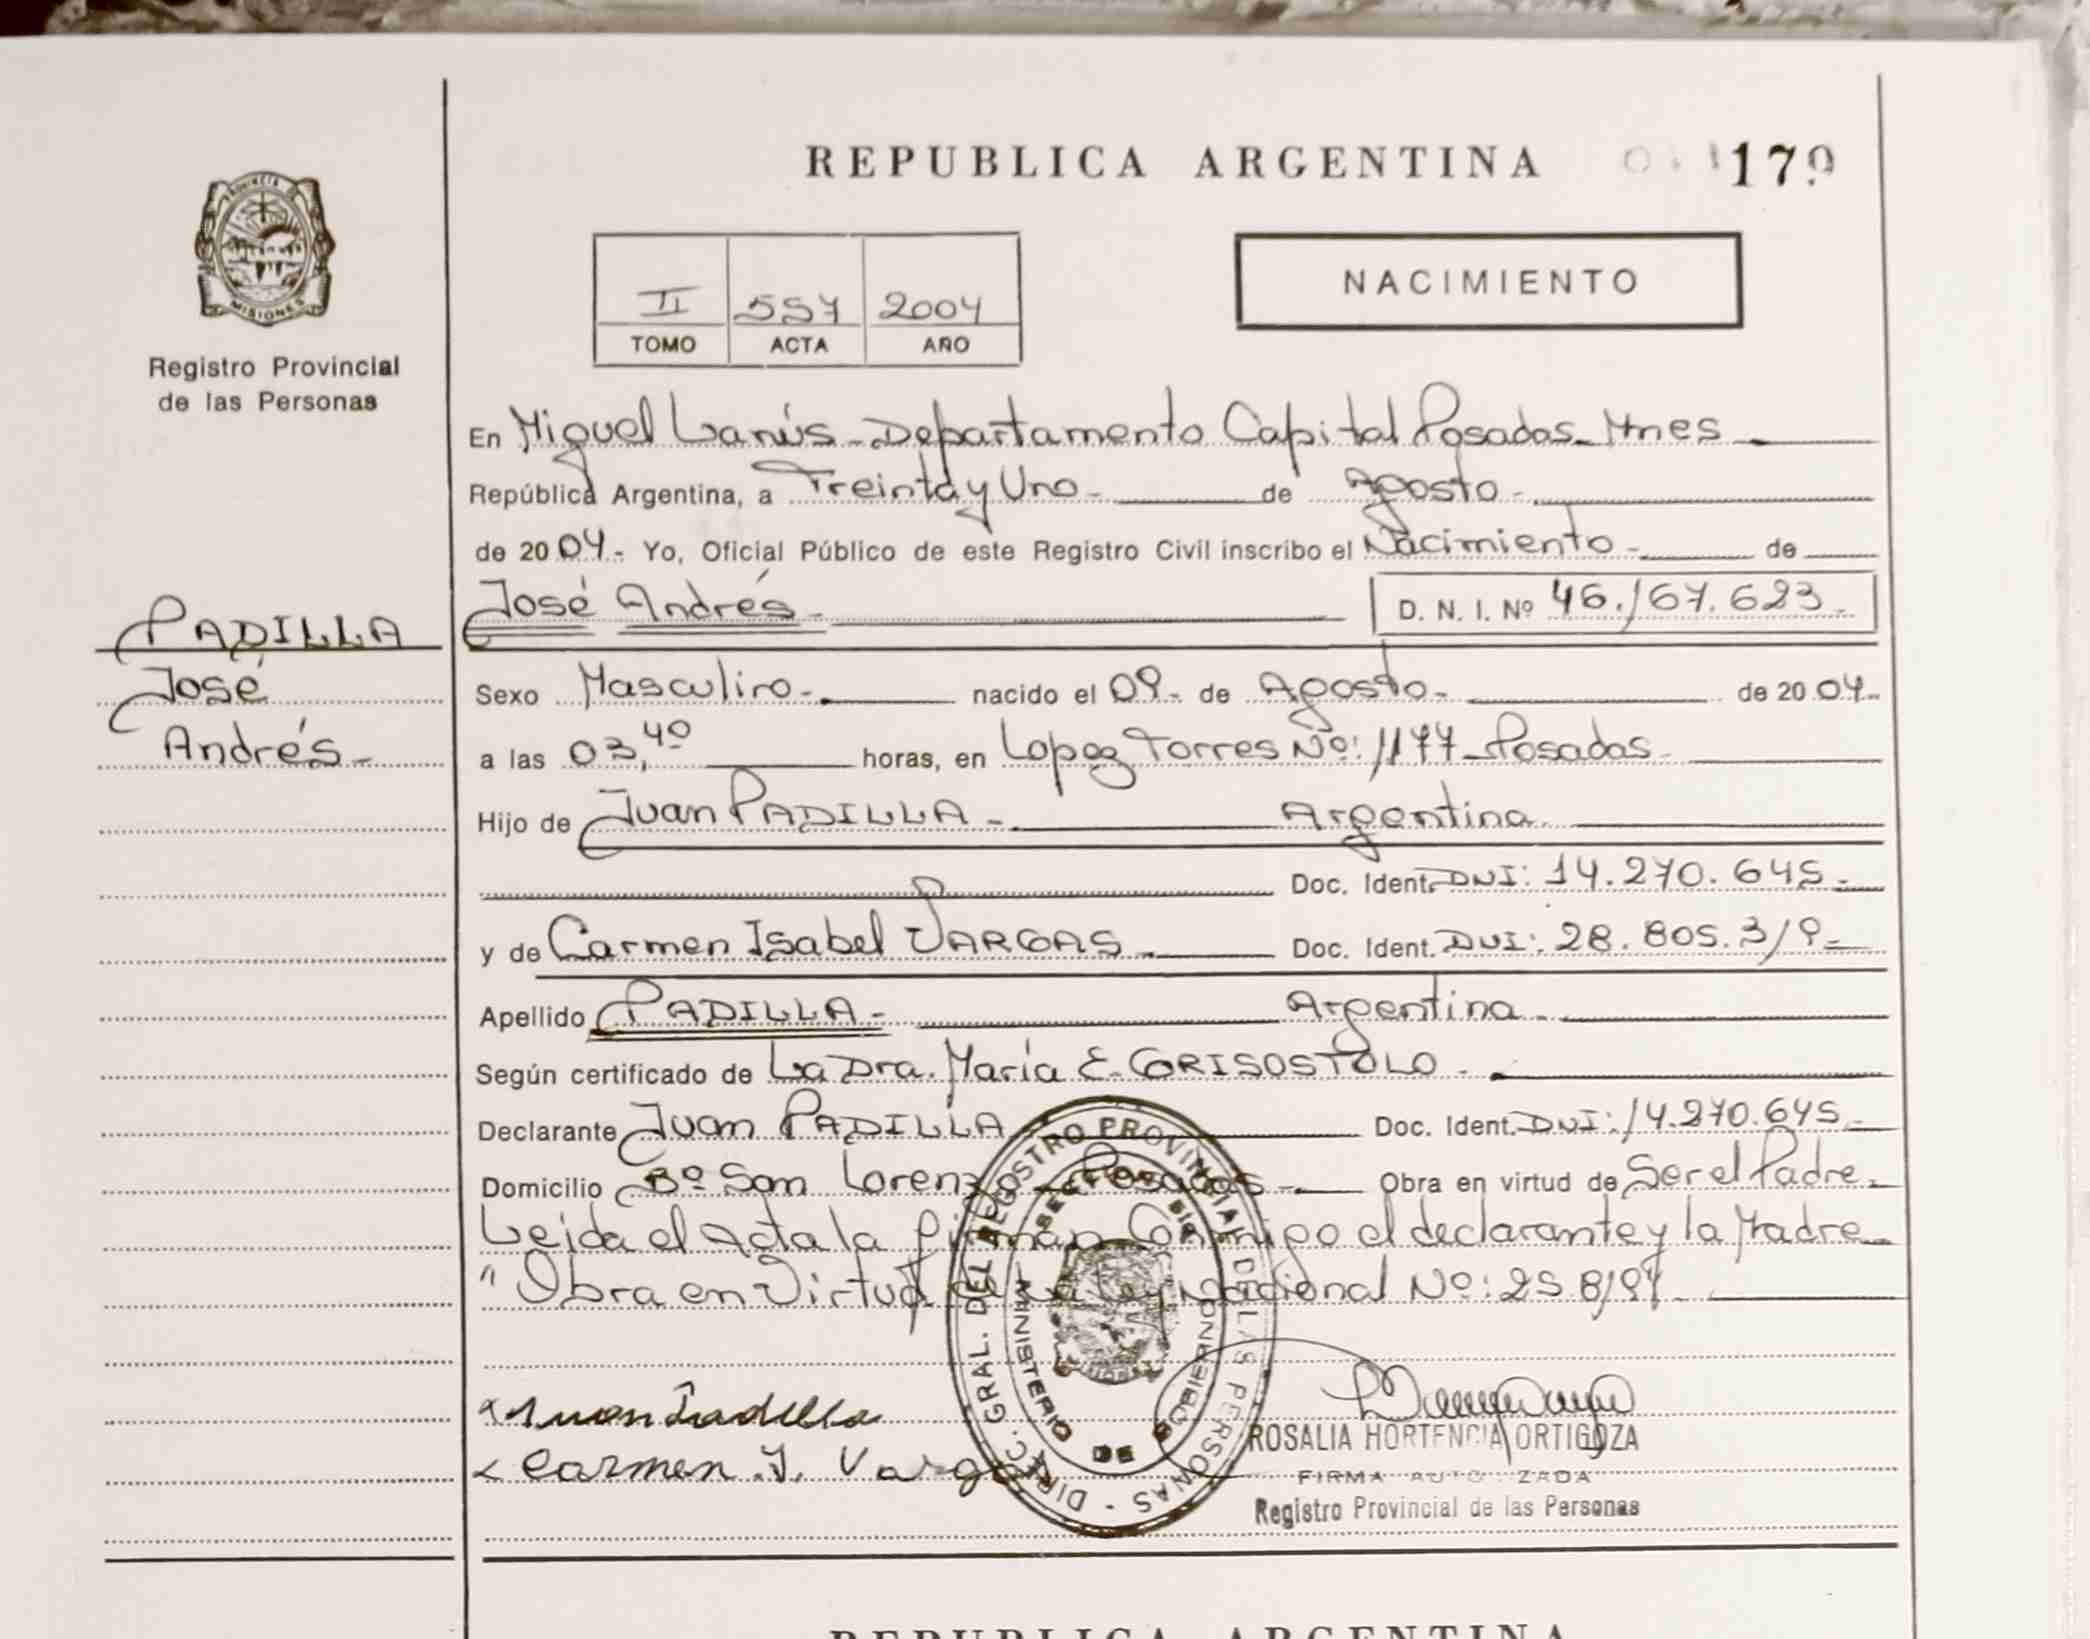 REPUBLICA ARGENTINA 179
PROVINCIA DE
MISIONES
Registro Provincial
de las Personas
II 557 2004
TOMO ACTA AÑO
NACIMIENTO
En Miguel Lanús - Departamento Capital Posadas - Mnes
República Argentina, a Treinta y Uno - de Agosto -
de 2004 - Yo, Oficial Público de este Registro Civil inscribo el Nacimiento - de
José Andrés - D. N. I. Nº 46.167.623 -
PADILLA
José
Andrés -
Sexo Masculino - nacido el 09 - de Agosto - de 2004 -
a las 03,40 horas, en Lopez Torres Nº: 1177 - Posadas -
Hijo de Juan PADILLA - Argentina -
Doc. Ident. DNI: 14.270.645 -
y de Carmen Isabel VARGAS - Doc. Ident. DNI: 28.805.319 -
Apellido PADILLA - Argentina -
Según certificado de La Dra. María E. GRISOSTOLO -
Declarante Juan PADILLA Doc. Ident. DNI: 14.270.645 -
Domicilio Bº San Lorenzo - Posadas - Obra en virtud de Ser el Padre -
Leida el Acta la firman Conmigo el declarante y la Madre -
"Obra en Virtud de la Ley Nacional Nº: 25 819
DIREC. GRAL. DEL REGISTRO PROVINCIAL DE LAS PERSONAS -
MINISTERIO DE GOBIERNO
Juan Padilla
Carmen. I. Vargas
ROSALIA HORTENCIA ORTIGOZA
FIRMA AUTORIZADA
Registro Provincial de las Personas
REPUBLICA ARGENTINA